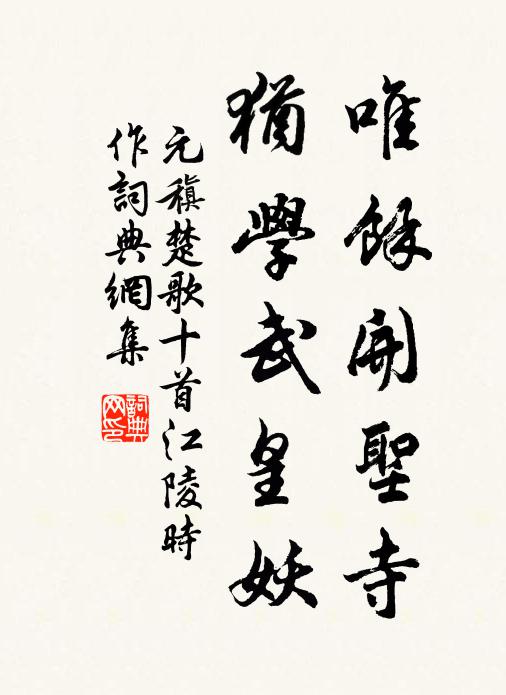 唯餘開聖寺
猶學武皇妖
元稹楚歌十首江陵時
作詞典網集
詞典网印